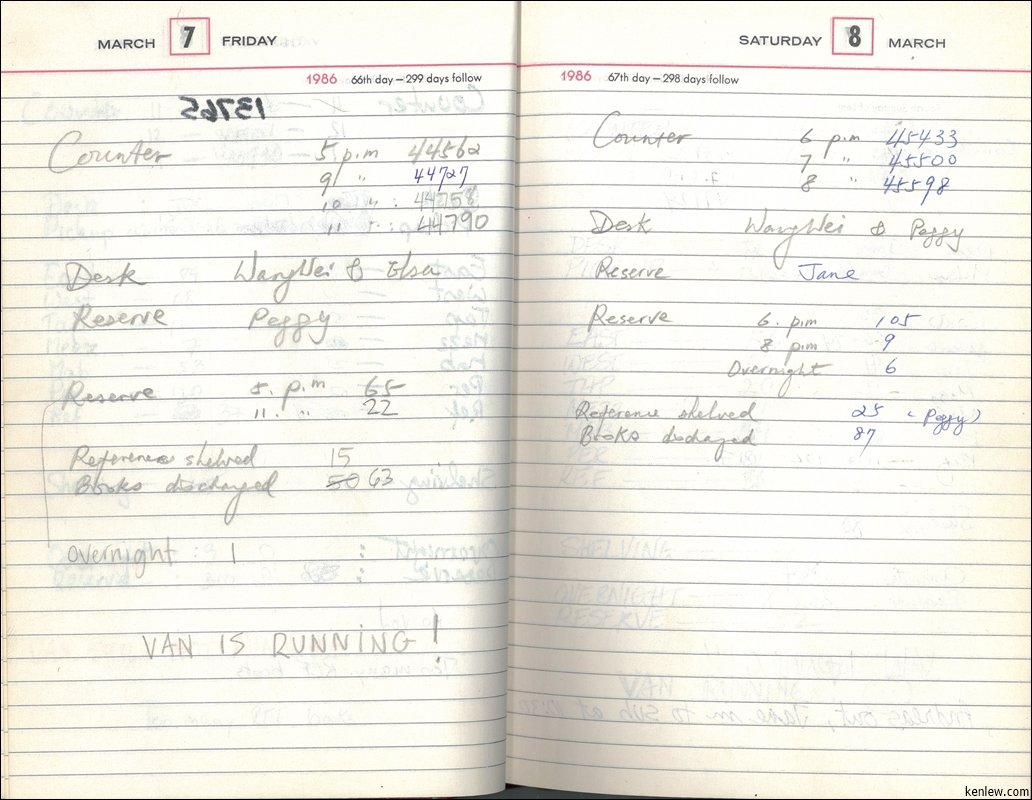 MARCH 7 FRIDAY
1986 66th day — 299 days follow
13765
Counter 5 p.m 44562
9 " 44727
10 " : 44758
11 " : 44790
Desk WangWei & Elsa
Reserve Peggy
Reserve 5. p.m 65
11. " 22
Reference shelved 15
Books discharged 50 63
overnight 1
VAN IS RUNNING!
SATURDAY 8 MARCH
1986 67th day — 298 days follow
Counter 6 p.m 45433
7 " 45500
8 " 45598
Desk WangWei & Peggy
Reserve Jane
Reserve 6. p.m 105
8 p.m 9
Overnight 6
Reference shelved 25 (Peggy)
Books discharged 87
kenlew.com